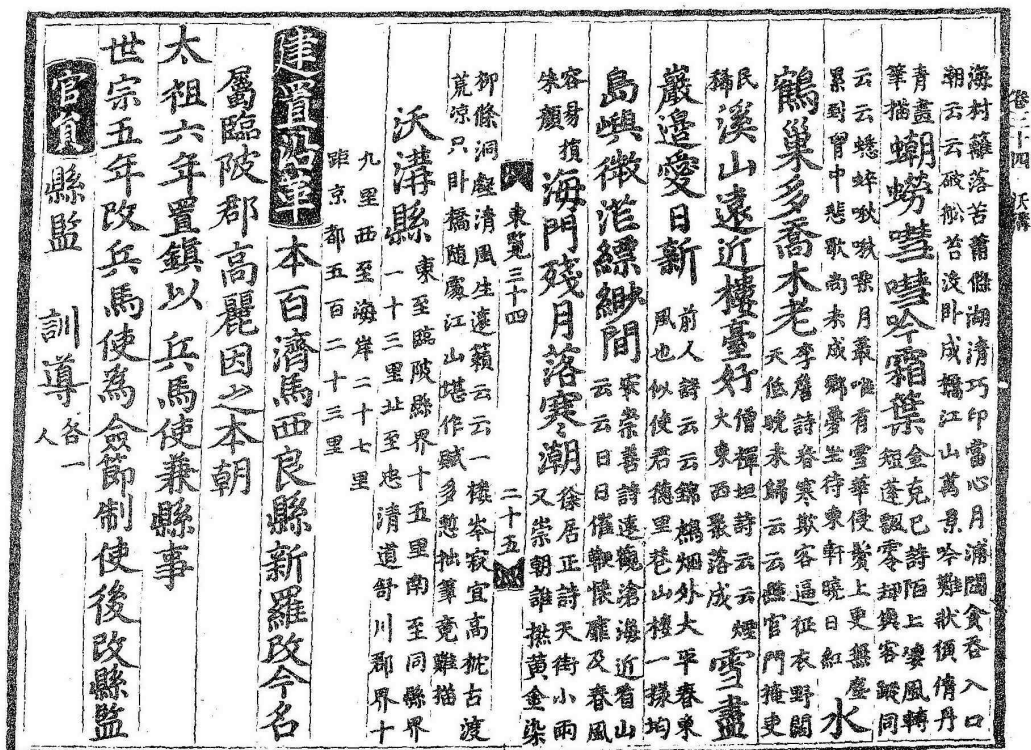 卷三十四 沃溝
海村籬落苦蕭條湖清巧印當心月浦闊貪吞入口
朝云云破船苔沒卧成橋江山萬景吟難狀須倩丹
青畫筆描 嘒嘒吟霜葉 金克己詩陌上凄風轉
短蓬飄零却與客蹤同
云云蟋蟀啾啾 月叢唯有雪華侵鬢上更無塵
累到胷中悲歌尚未成鄉夢坐待東軒曉日紅 水
鶴巢多喬木老 李詹詩春寒欺客逼征衣野闊
天低晚未歸云云縣官門掩吏
民稀 溪山遠近樓臺好 僧禪坦詩云云煙
火東西聚落成 雪盡
巖邊愛日新 前人詩云云錦 烟外大平春東
風也似使君德里巷山樓一樣均
島嶼微茫縹緲間 崇善詩遠觀滄海近看山
云云日日催鞭懷靡及春風
容易損朱顏 海門殘月落寒潮 徐居正詩天街小雨
又崇朝誰撚黃金染
東覽三十四 二十五
柳條洞壑清風生遠籟云云一樣岑寂宜高枕古渡
荒涼只卧橋隨處江山堪作賦多慙拙筆竟難描
沃溝縣 東至臨陂縣界十五里南至同縣界
一十三里北至忠清道舒川郡界十
九里西至海岸二十七里
距京都五百二十三里
建置沿革 本百濟馬西良縣新羅改今名
屬臨陂郡高麗因之本朝
太祖六年置鎮以兵馬使兼縣事
世宗五年改兵馬使為僉節制使後改縣監
官員 縣監 訓導 各一人